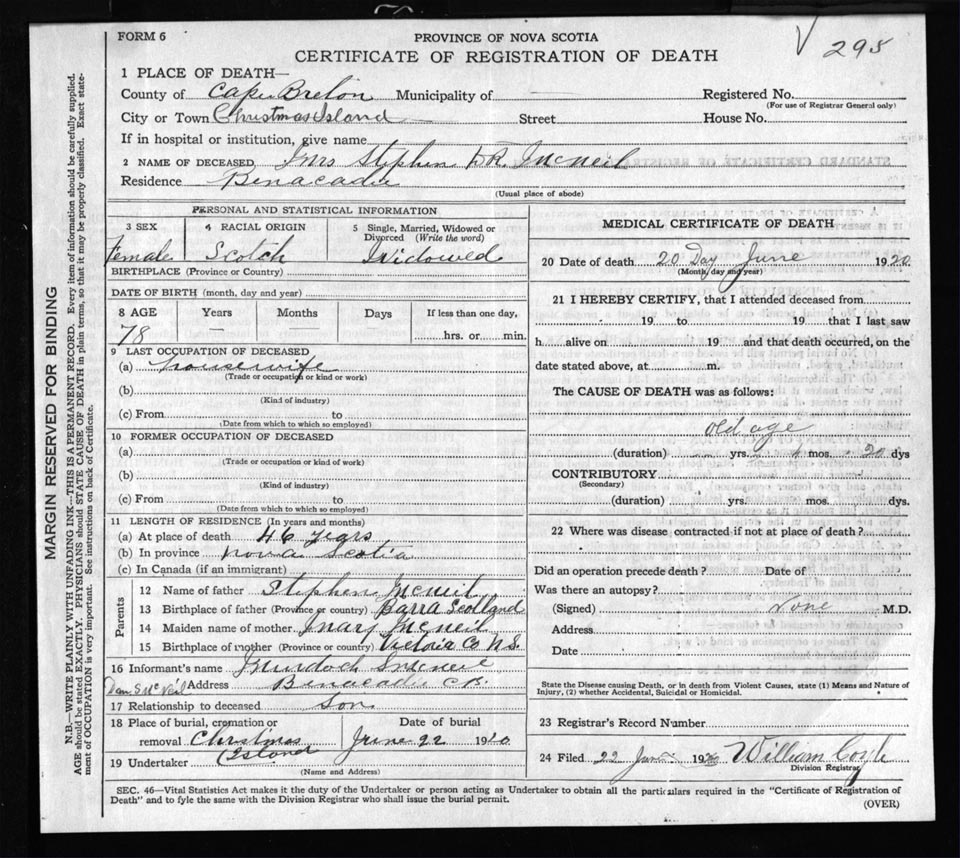 FORM 6
PROVINCE OF NOVA SCOTIA
CERTIFICATE OF REGISTRATION OF DEATH
295
1 PLACE OF DEATH—
County of Cape Breton Municipality of Registered No.
(For use of Registrar General only)
City or Town Christmas Island Street House No.
If in hospital or institution, give name
2 NAME OF DECEASED Mrs Stephen D R McNeil
Residence Benacadie
(Usual place of abode)
PERSONAL AND STATISTICAL INFORMATION
3 SEX 4 RACIAL ORIGIN 5 Single, Married, Widowed or Divorced (Write the word)
Female Scotch Widowed
BIRTHPLACE (Province or Country)
DATE OF BIRTH (month, day and year)
8 AGE Years Months Days If less than one day,
78 hrs. or min.
9 LAST OCCUPATION OF DECEASED
(a) housewife
(Trade or occupation or kind of work)
(b)
(Kind of industry)
(c) From to
(Date from which to which so employed)
10 FORMER OCCUPATION OF DECEASED
(a)
(Trade or occupation or kind of work)
(b)
(Kind of industry)
(c) From to
(Date from which to which so employed)
11 LENGTH OF RESIDENCE (In years and months)
(a) At place of death 46 years
(b) In province Nova Scotia
(c) In Canada (if an immigrant)
Parents
12 Name of father Stephen McNeil
13 Birthplace of father (Province or country) Barra Scotland
14 Maiden name of mother Mary McNeil
15 Birthplace of mother (Province or country) Victoria Co N.S.
16 Informant's name Murdoch S McNeil
Dan S McNeil Address Benacadie C B.
17 Relationship to deceased son
18 Place of burial, cremation or removal Christmas Island Date of burial June 22 1920
19 Undertaker
(Name and Address)
MEDICAL CERTIFICATE OF DEATH
20 Date of death 20 Day June 1920
(Month, day and year)
21 I HEREBY CERTIFY, that I attended deceased from
19 to 19 that I last saw
h alive on 19 and that death occurred, on the
date stated above, at m.
The CAUSE OF DEATH was as follows:
old age
(duration) yrs. mos. 20 dys
CONTRIBUTORY
(Secondary)
(duration) yrs. mos. dys.
22 Where was disease contracted if not at place of death?
Did an operation precede death? Date of
Was there an autopsy?
(Signed) None M.D.
Address
Date
State the Disease causing Death, or in death from Violent Causes, state (1) Means and Nature of
Injury, (2) whether Accidental, Suicidal or Homicidal.
23 Registrar's Record Number
24 Filed 22 June 1920 William Coyle
Division Registrar
SEC. 46—Vital Statistics Act makes it the duty of the Undertaker or person acting as Undertaker to obtain all the particulars required in the "Certificate of Registration of
Death" and to fyle the same with the Division Registrar who shall issue the burial permit.
(OVER)
MARGIN RESERVED FOR BINDING
N.B.—WRITE PLAINLY WITH UNFADING INK—THIS IS A PERMANENT RECORD. Every item of information should be carefully supplied.
AGE should be stated EXACTLY. PHYSICIANS should STATE CAUSE OF DEATH in plain terms, so that it may be properly classified. Exact state-
ment of OCCUPATION is very important. See instructions on back of Certificate.